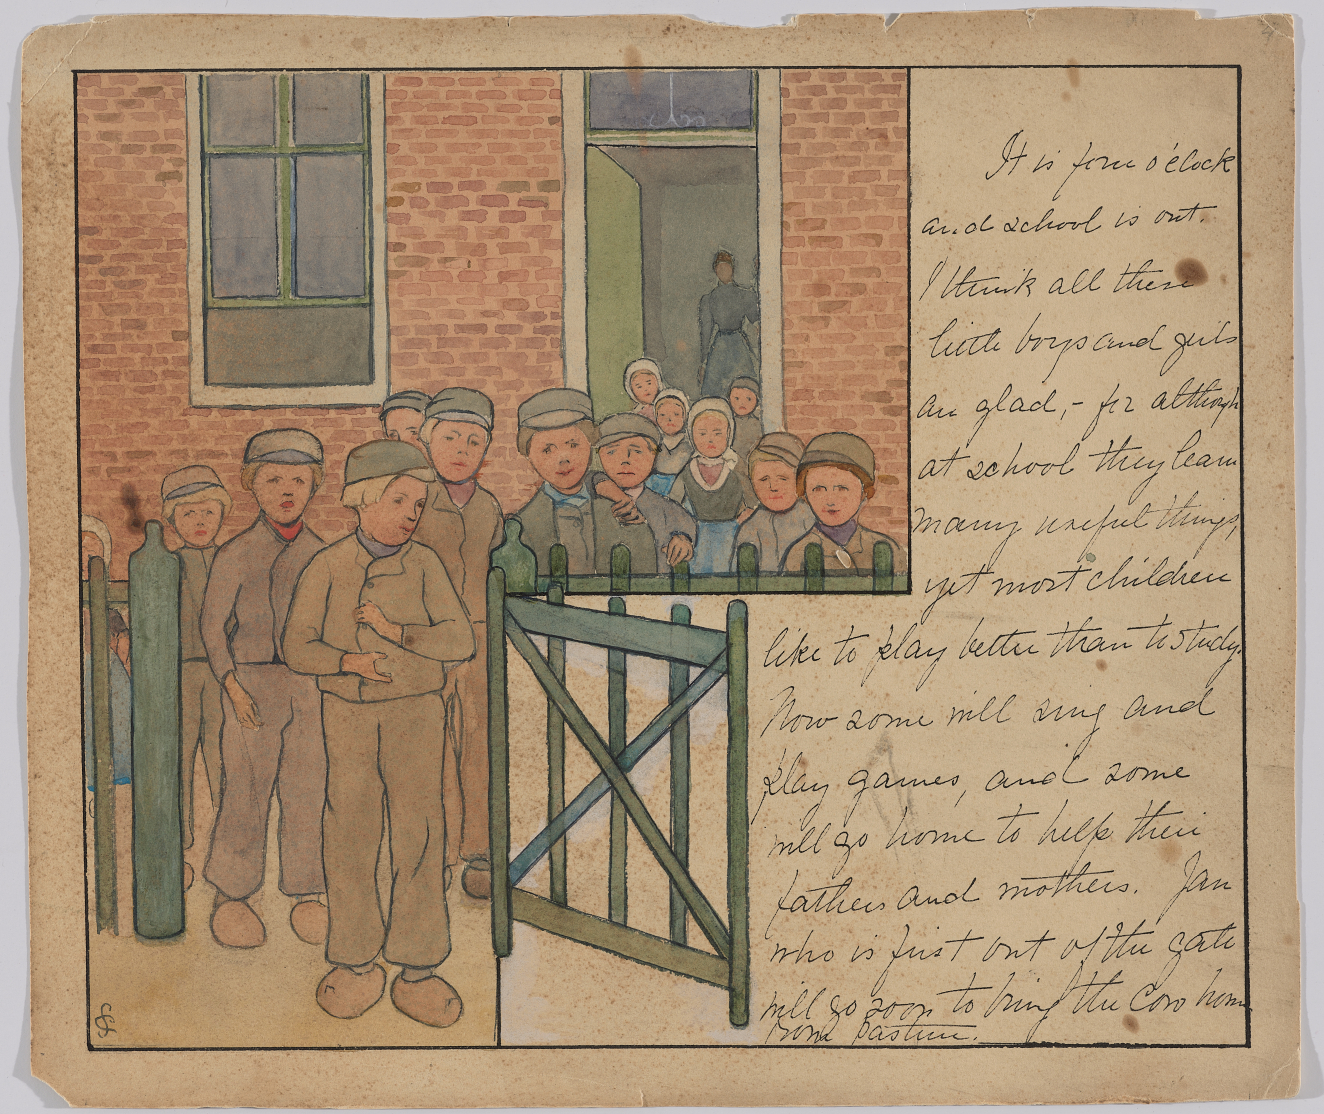 It is four o'clock
and school is out.
I think all these
little boys and girls
are glad,- for although
at school they learn
many useful things,
yet most children
like to play better than to study.
Now some will sing and
play games, and some
will go home to help their
fathers and mothers. Jan
who is first out of the gate
will go soon to bring the Cow home
from pasture.